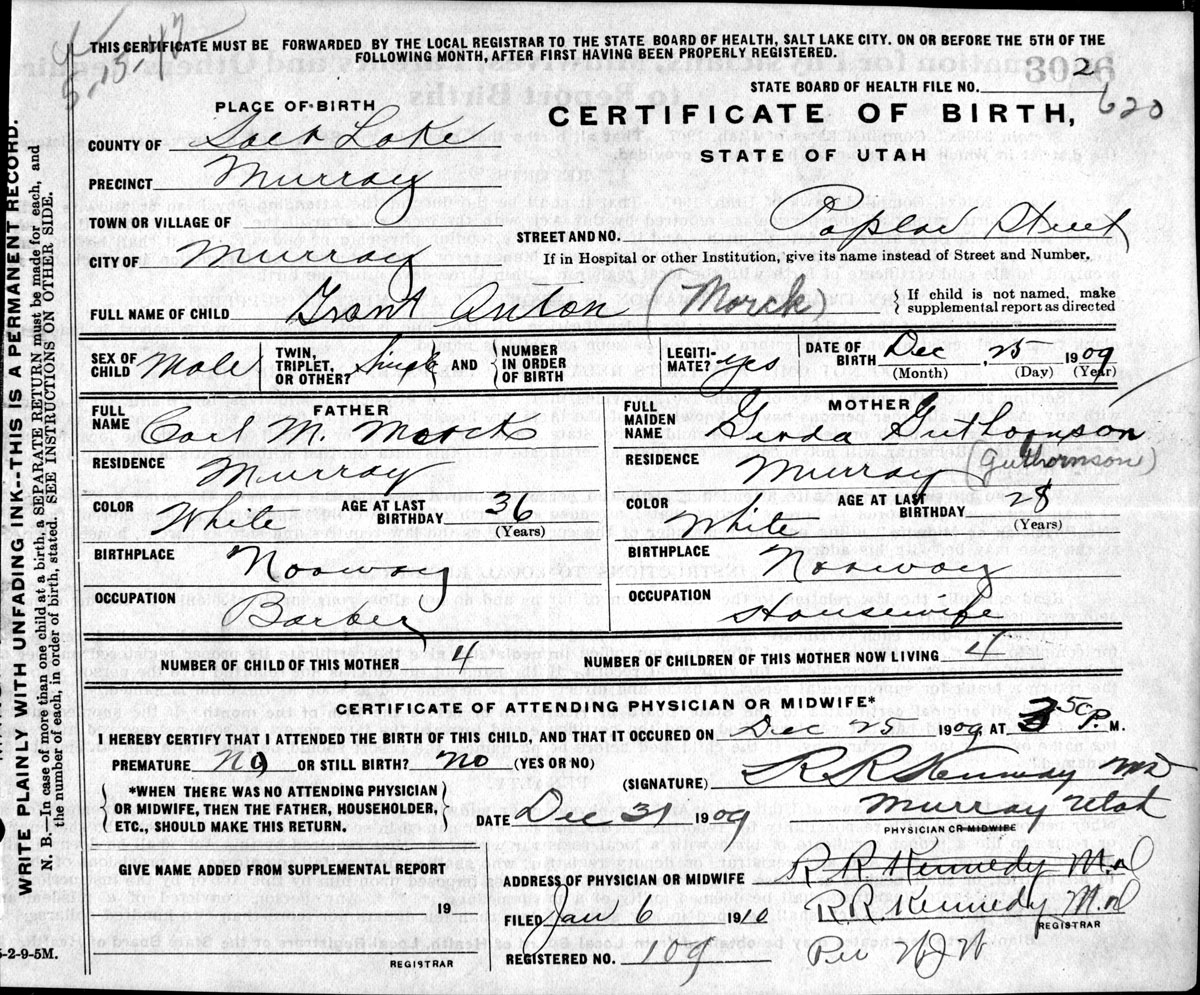 THIS CERTIFICATE MUST BE FORWARDED BY THE LOCAL REGISTRAR TO THE STATE BOARD OF HEALTH, SALT LAKE CITY. ON OR BEFORE THE 5TH OF THE
FOLLOWING MONTH, AFTER FIRST HAVING BEEN PROPERLY REGISTERED.
STATE BOARD OF HEALTH FILE NO. 2
620
PLACE OF BIRTH
CERTIFICATE OF BIRTH,
STATE OF UTAH
COUNTY OF Salt Lake
PRECINCT Murray
TOWN OR VILLAGE OF
CITY OF Murray
STREET AND NO. Poplar Street
If in Hospital or other Institution, give its name instead of Street and Number.
FULL NAME OF CHILD Grant Anton (Morck)
If child is not named, make
supplemental report as directed
SEX OF CHILD Male
TWIN, TRIPLET, OR OTHER? Single AND NUMBER IN ORDER OF BIRTH
LEGITI- MATE? yes
DATE OF BIRTH Dec 25 1909
(Month) (Day) (Year)
FATHER
FULL NAME Carl M. Morck
RESIDENCE Murray
COLOR White AGE AT LAST BIRTHDAY 36
(Years)
BIRTHPLACE Norway
OCCUPATION Barber
MOTHER
FULL MAIDEN NAME Gerda Guthornson
RESIDENCE Murray (Guthornson)
COLOR White AGE AT LAST BIRTHDAY 28
(Years)
BIRTHPLACE Norway
OCCUPATION Housewife
NUMBER OF CHILD OF THIS MOTHER 4
NUMBER OF CHILDREN OF THIS MOTHER NOW LIVING 4
CERTIFICATE OF ATTENDING PHYSICIAN OR MIDWIFE*
I HEREBY CERTIFY THAT I ATTENDED THE BIRTH OF THIS CHILD, AND THAT IT OCCURED ON Dec 25 1909 AT 3 50 P. M.
PREMATURE No OR STILL BIRTH? No (YES OR NO)
(SIGNATURE) R R Kennedy MD
Murray Utah
PHYSICIAN OR MIDWIFE
*WHEN THERE WAS NO ATTENDING PHYSICIAN
OR MIDWIFE, THEN THE FATHER, HOUSEHOLDER,
ETC., SHOULD MAKE THIS RETURN.
DATE Dec 31 1909
GIVE NAME ADDED FROM SUPPLEMENTAL REPORT
19
REGISTRAR
ADDRESS OF PHYSICIAN OR MIDWIFE R R Kennedy M.d
FILED Jan 6 1910 R R Kennedy M.d
REGISTRAR
REGISTERED NO. 109 Per WJW
WRITE PLAINLY WITH UNFADING INK--THIS IS A PERMANENT RECORD.
N. B.—In case of more than one child at a birth, a SEPARATE RETURN must be made for each, and
the number of each, in order of birth, stated. SEE INSTRUCTIONS ON OTHER SIDE.
5-2-9-5M.